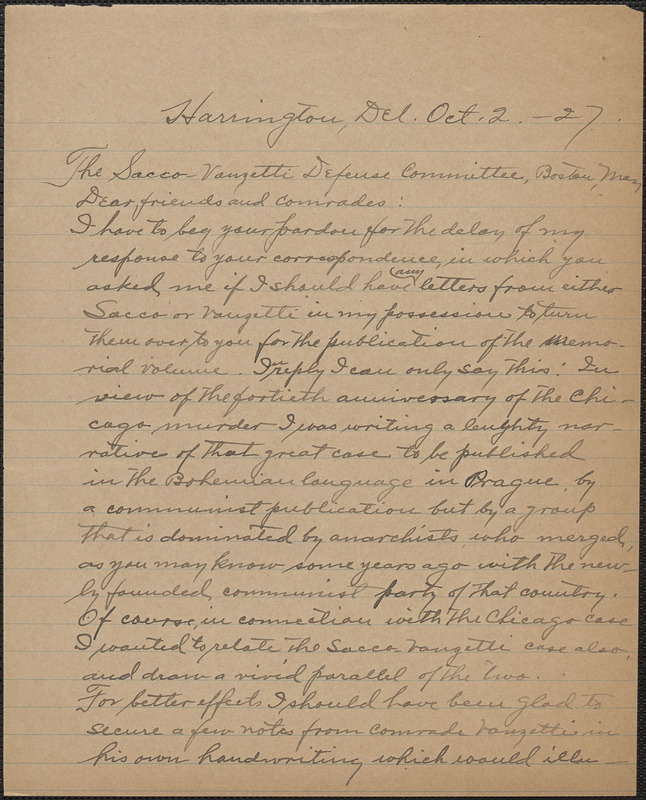 Harrington, Del. Oct. 2. -27.
The Sacco-Vanzetti Defense Committee, Boston, Mass
Dear friends and comrades:
I have to beg your pardon for the delay of my
response to your correspondence, in which you
asked me if I should have any letters from either
Sacco or Vanzetti in my possession to turn
them over to you for the publication of the memo-
rial volume. In reply I can only say this: In
view of the fortieth anniversary of the Chi-
cago murder I was writing a laughty nar-
rative of that great case to be published
in the Bohemian language in Prague, by
a communist publication but by a group
that is dominated by anarchists who merged,
as you may know some years ago with the new-
ly founded communist party of that country.
Of course, in connection with the Chicago case
I wanted to relate the Sacco-Vanzetti case also,
and draw a vivid parallel of the two.
For better effects I should have been glad to
secure a few notes from comrade Vanzetti in
his own handwriting which would illu-